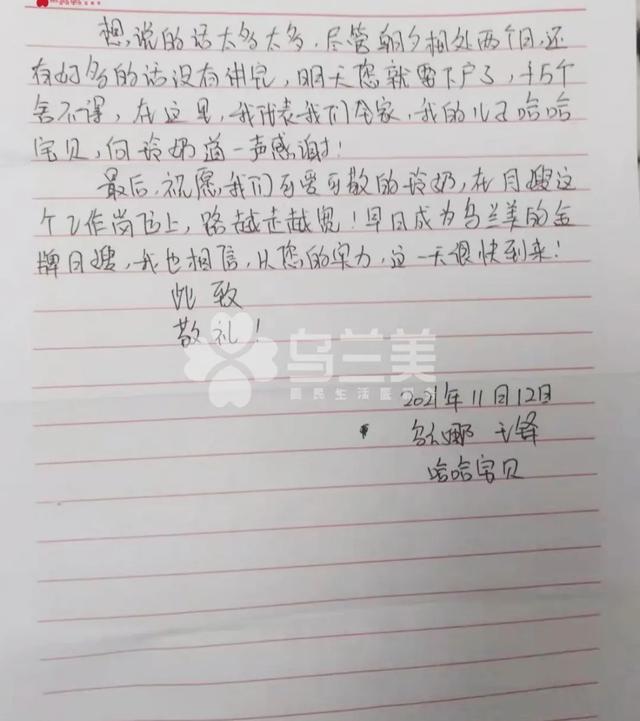 想说的话太多太多，尽管朝夕相处两个月，还
有好多的话没有讲完，明天您就要下户了，千万个
舍不得，在这里，我代表我们全家，我的儿子哈哈
宝贝，向玲奶道一声感谢！
最后，祝愿我们可爱可敬的玲奶，在月嫂这
个工作岗位上，路越走越宽！早日成为乌兰美的金
牌月嫂，我也相信，从您的实力，这一天很快到来！
此致
敬礼！
乌兰美
2021年11月12日
娜 锋
哈哈宝贝